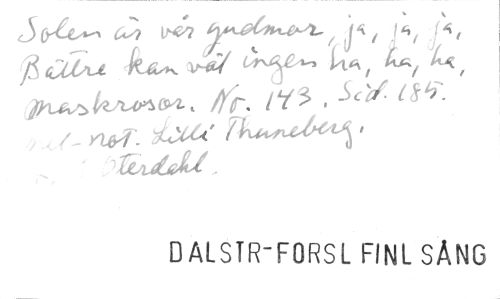 Solen är vår gudmor, ja, ja, ja,
Bättre kan väl ingen ha, ha, ha,
Maskrosor. No. 143. Sid. 185.
mel-not. Lilli Thuneberg.
Österdahl.
DALSTR-FORSL FINL SÅNG